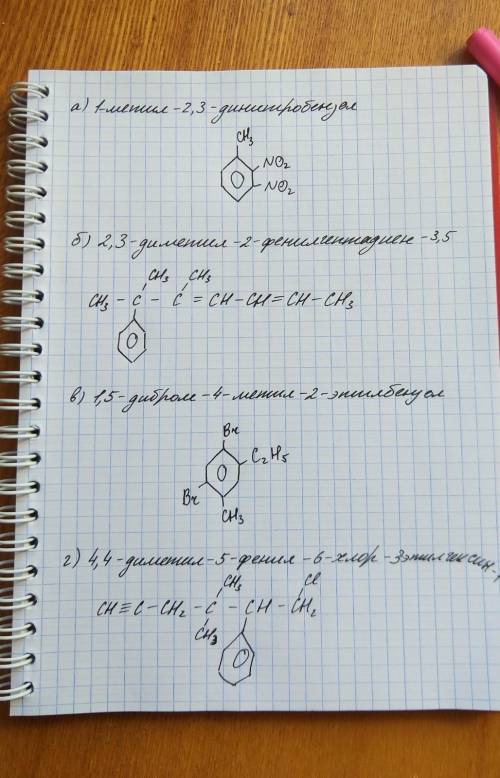 а) 1-метил-2,3-динитробензол
CH₃
NO₂
NO₂
б) 2,3-диметил-2-фенилгептадиен-3,5
CH₃ CH₃
CH₃ - C - C = CH - CH = CH - CH₃
в) 1,5-дибром-4-метил-2-этилбензол
Br
C₂H₅
Br
CH₃
г) 4,4-диметил-5-фенил-6-хлор-3этилгексин-1
CH₃ Cl
CH ≡ C - CH₂ - C - CH - CH₂
CH₃